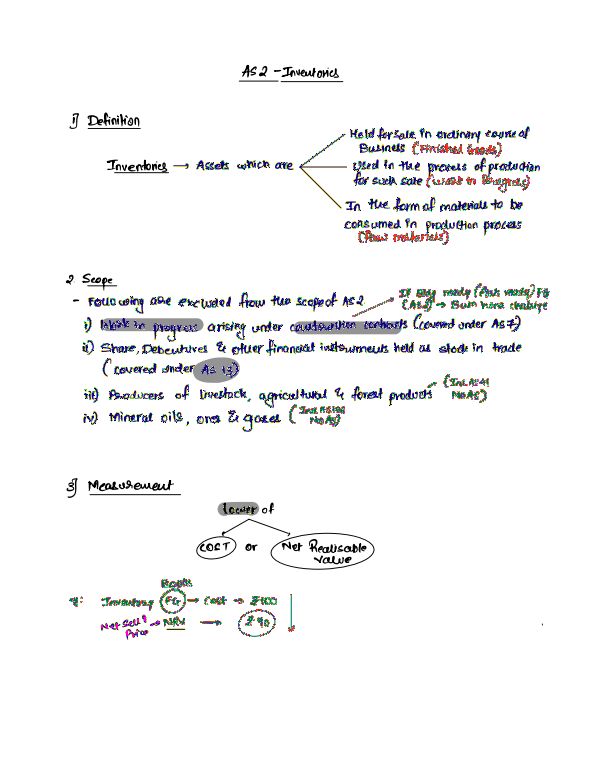 AS 2 - Inventories
1] Definition
Inventories → Assets which are
Held for sale in ordinary course of
Business (Finished Goods)
Used in the process of production
for such sale (Work in Progress)
In the form of materials to be
consumed in production process
(Raw materials)
2 Scope
- Following are excluded from the scope of AS 2
If Bldg ready (Flats ready) FG
(AS 2) →
i) Work in progress arising under construction contracts (covered under AS 7)
ii) Share, Debentures & other financial instruments held as stock in trade
(covered under AS 13)
iii) Producers of livestock, agricultural & forest products (Ind AS 41
No AS)
iv) Mineral oils, ores & gases (Ind AS
No AS)
3] Measurement
lower of
COST or Net Realisable
Value
Books
eg: Inventory FG → Cost → ₹100
Net Sell⁹
Price → NRV → ₹ 90